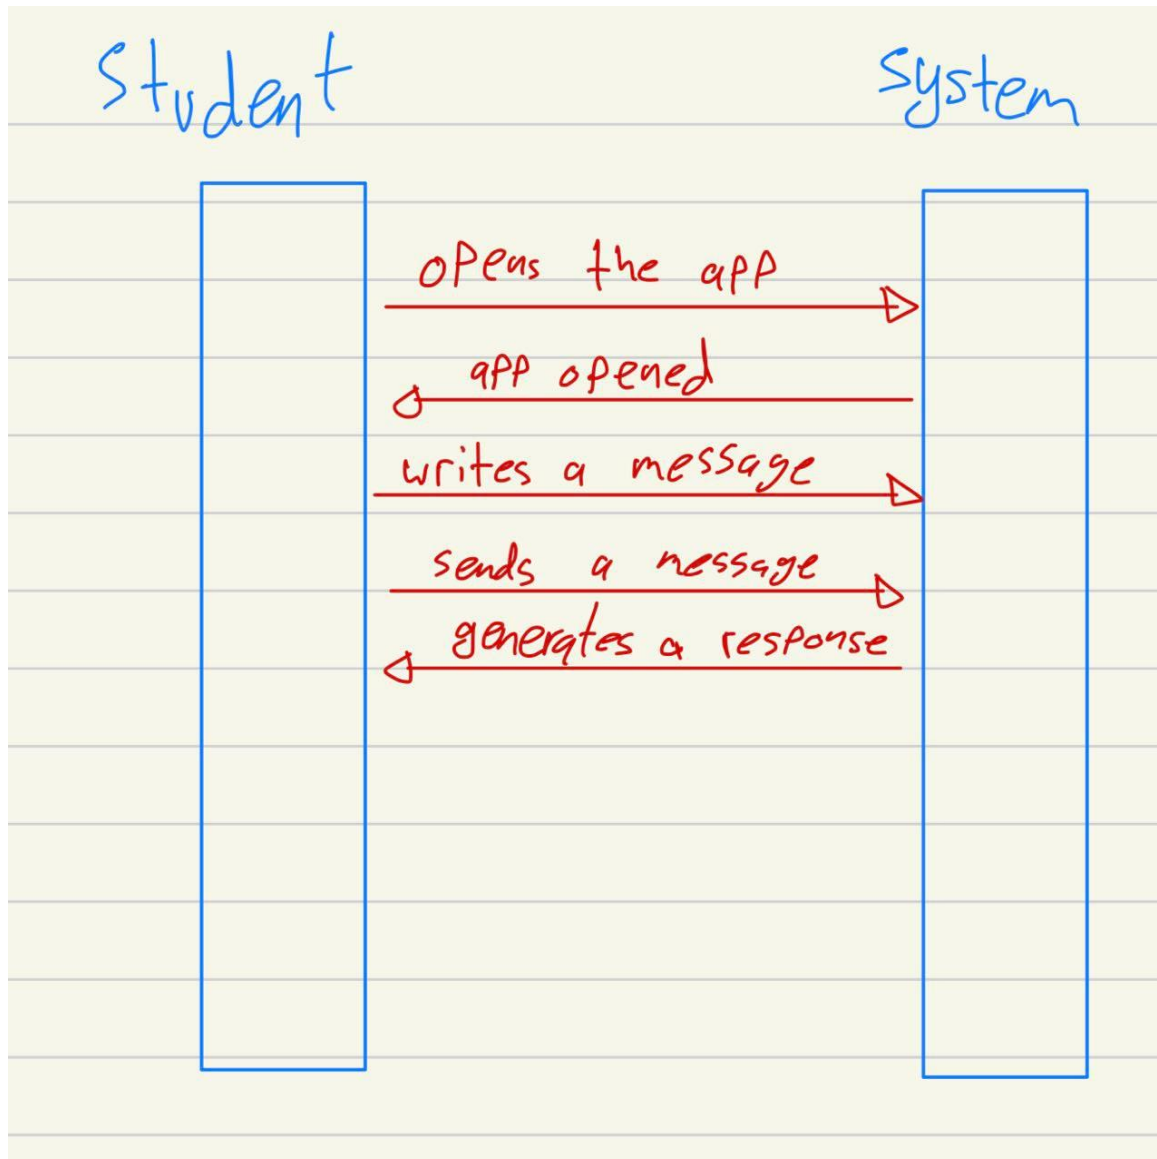 Student
System
opens the app
app opened
writes a message
sends a message
generates a response